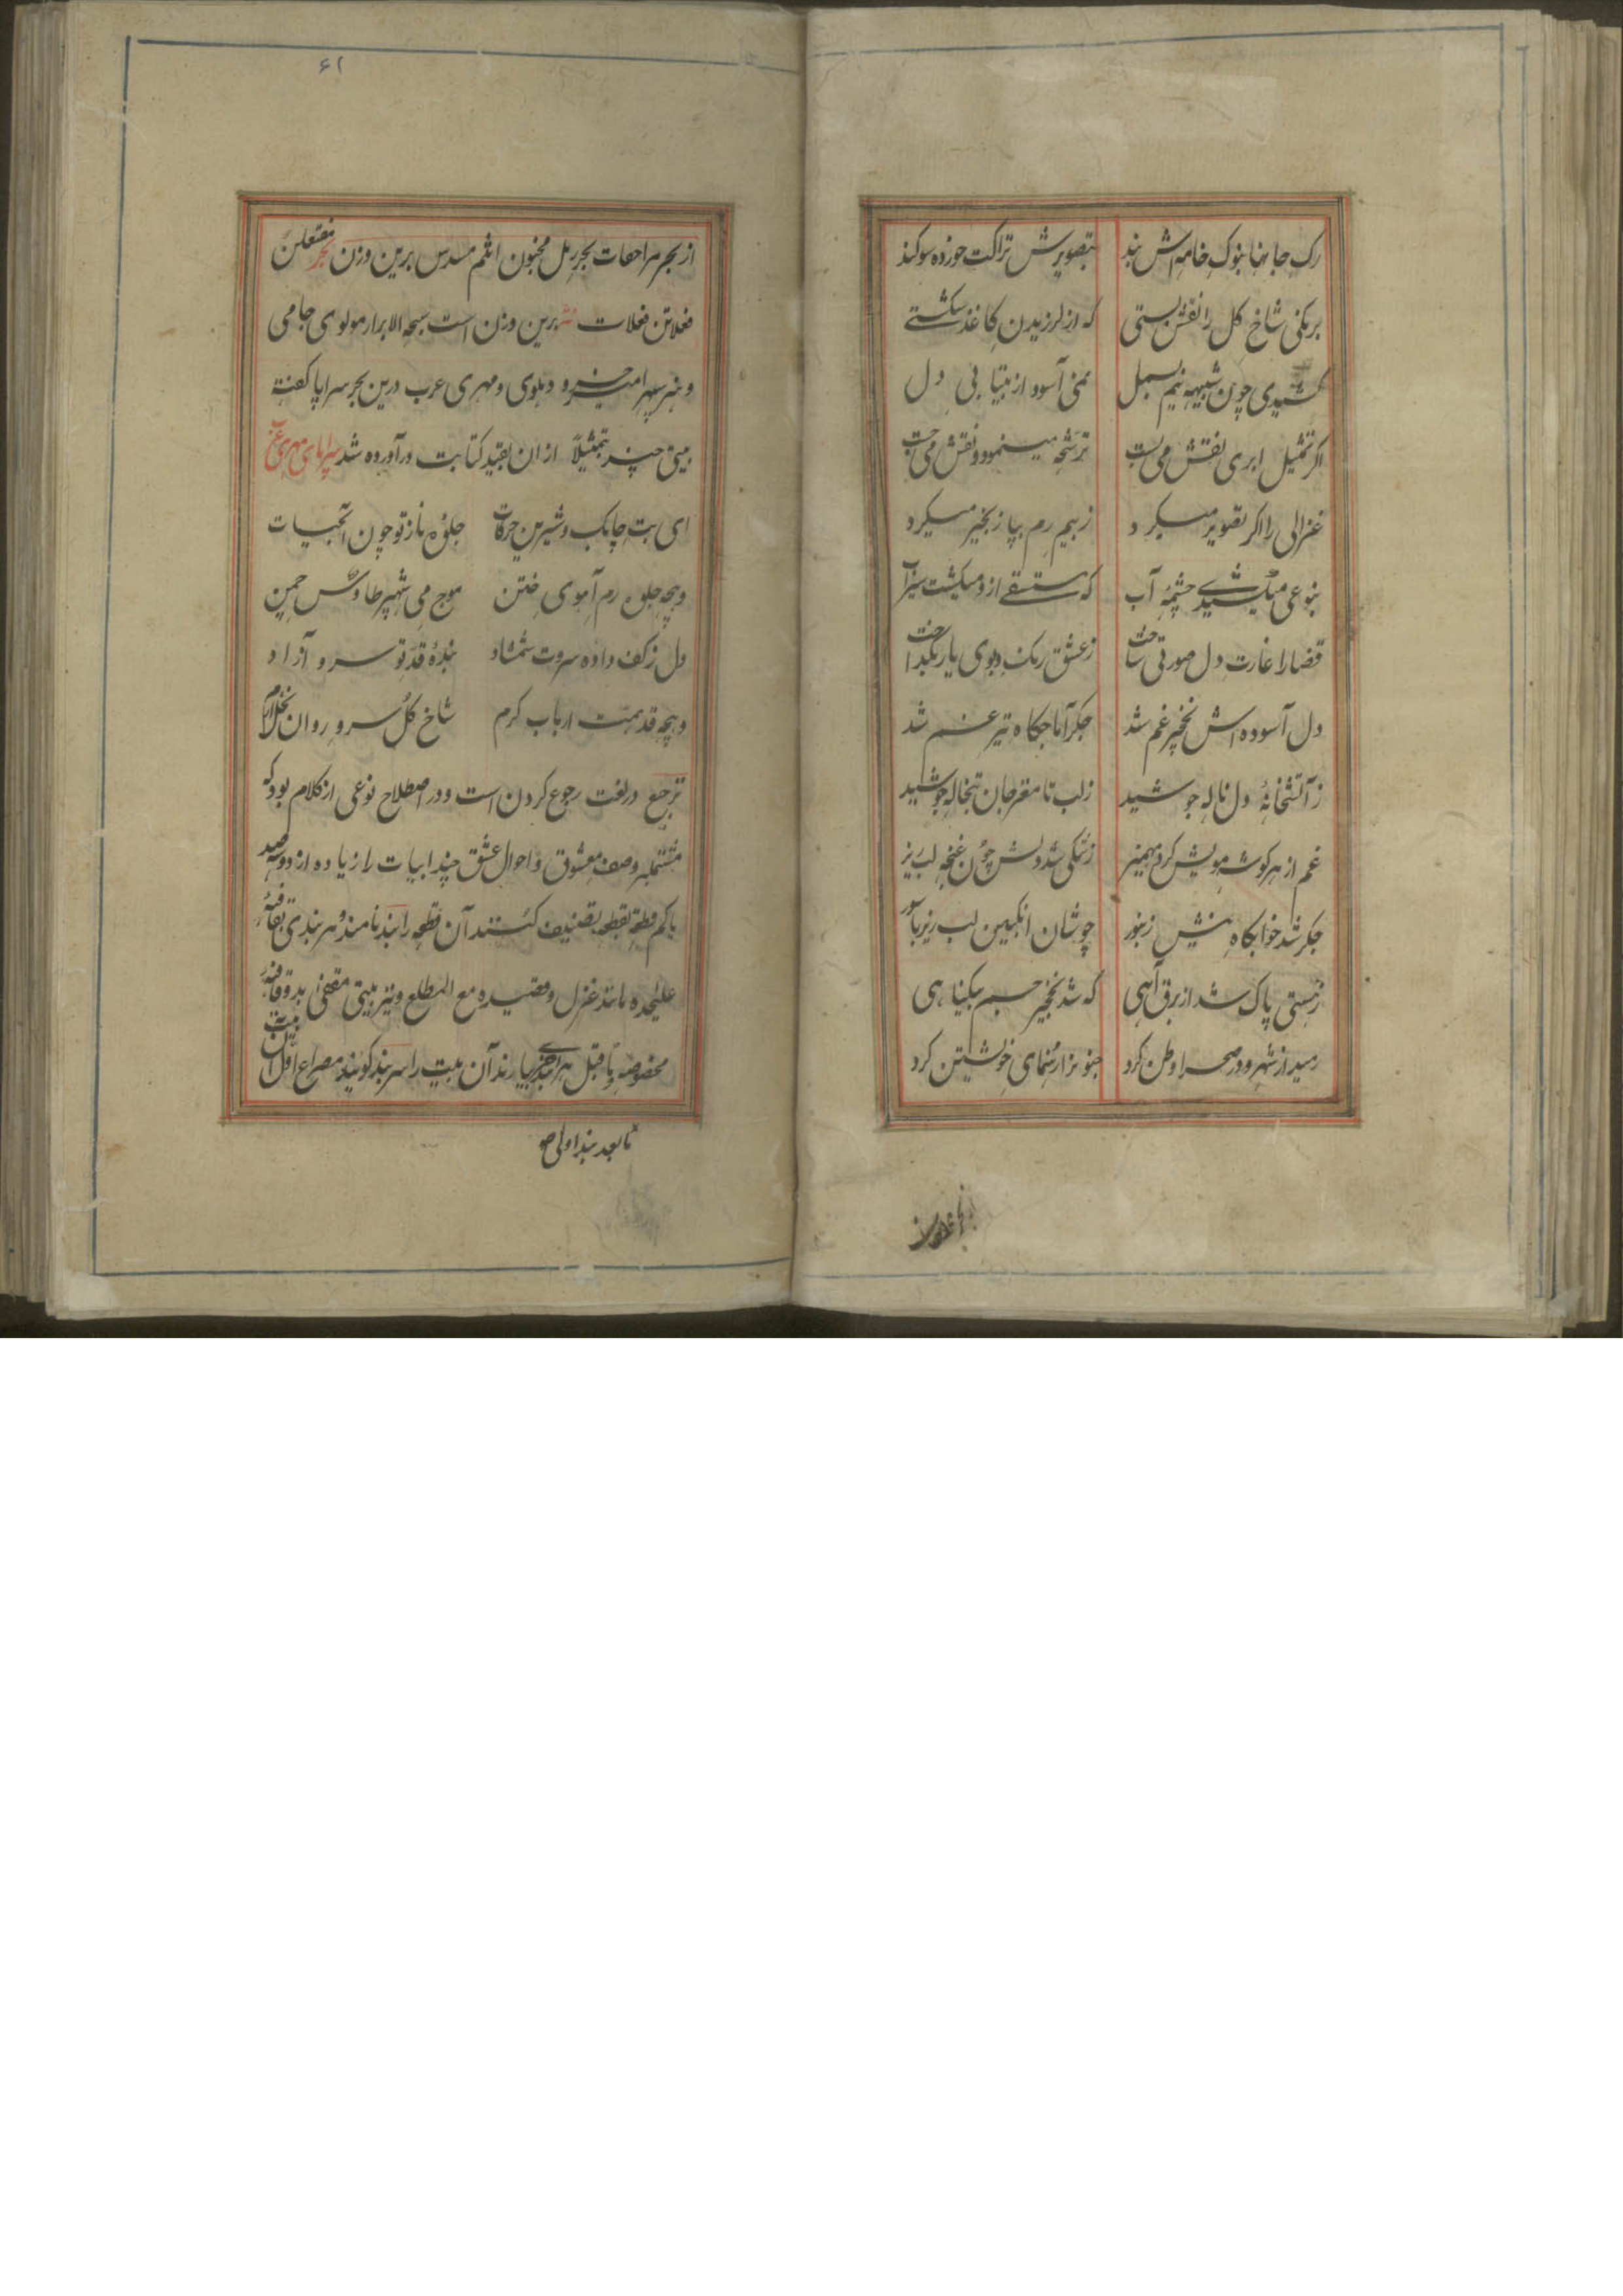 رک جانها بنوک خامه اش بند بتصویرش نزاکت خورده سوکند
برنکی شاخ کل را نقش بستی که از لرزیدن کاغذ شکستی
کشیدی چون شبیه نیم بسمل نمی آسود از بیتابی دل
اکر تمثیل ابری نقش می بست ترشح مینمود و نقش می جست
غزالی را اکر تصویر میکرد ز بیم رم بپا زنجیر میکرد
بنوعی میکشیدی چشمه آب که مستسقی ازو میکشت سیراب
قضا را غارت دل صورتی ساخت ز عشق رنک و بوی یار نکداخت
دل آسوده اش نخچیر غم شد جکر آماجکاه تیر غم شد
ز آتشخانه دل ناله جوشید ز لب تا مغز جان تبخاله جوشید
غم از هر کوشه مویش کرد مهمیز ز تنکی شد دلش چون غنچه لب ریز
جکر شد خوابکاه نیش زنبور چو شان انکبین لب ریز ناسور
ز هستی پاک شد از برق آهی که شد نخچیر جسم بیکناهی
رمید از شهر و در صحرا وطن کرد جنونرا رهنمای خویشتن کرد
۶۱
از بحر مزاحفات بحر رمل مخبون اثلم مسدس برین وزن بحر مفتعلن
فعلاتن فعلات نثر برین وزن است سبحه الابرار مولوی جامی
و نه سپهر امیر خسرو دهلوی و مهری عرب درین بحر سراپا کفته
بیتی چند تمثیلاً ازان بقید کتابت در آورده شد سراپای مهری عرب
ای بت چابک و شیرین حرکات جلوه ناز تو چون آبحیات
و چه جلوه رم آهوی ختن موج می شهپر طاوس چمن
دل ز کف داده سروت شمشاد بنده قد تو سرو آزاد
و چه قد همت ارباب کرم شاخ کل سرو روان نخل ارم
ترجیع در لغت رجوع کردن است و در اصطلاح نوعی از کلام بود که
مشتملبر وصف معشوق و احوال عشق چند ابیات را زیاده از دو سه صد
یا کم قطعه بقطعه تصنیف کنند آن قطعه را بند نامند و هر بندی بقافیه
علیحده مانند غزل و قصیده مع المطلع و نیز بیتی مقفی بدو قافیه
مخصوصه و ما قبل هر بندی بیارند آن بیت را سر بند کویند مصراع اول آن بیت
تا بعد بند اولی